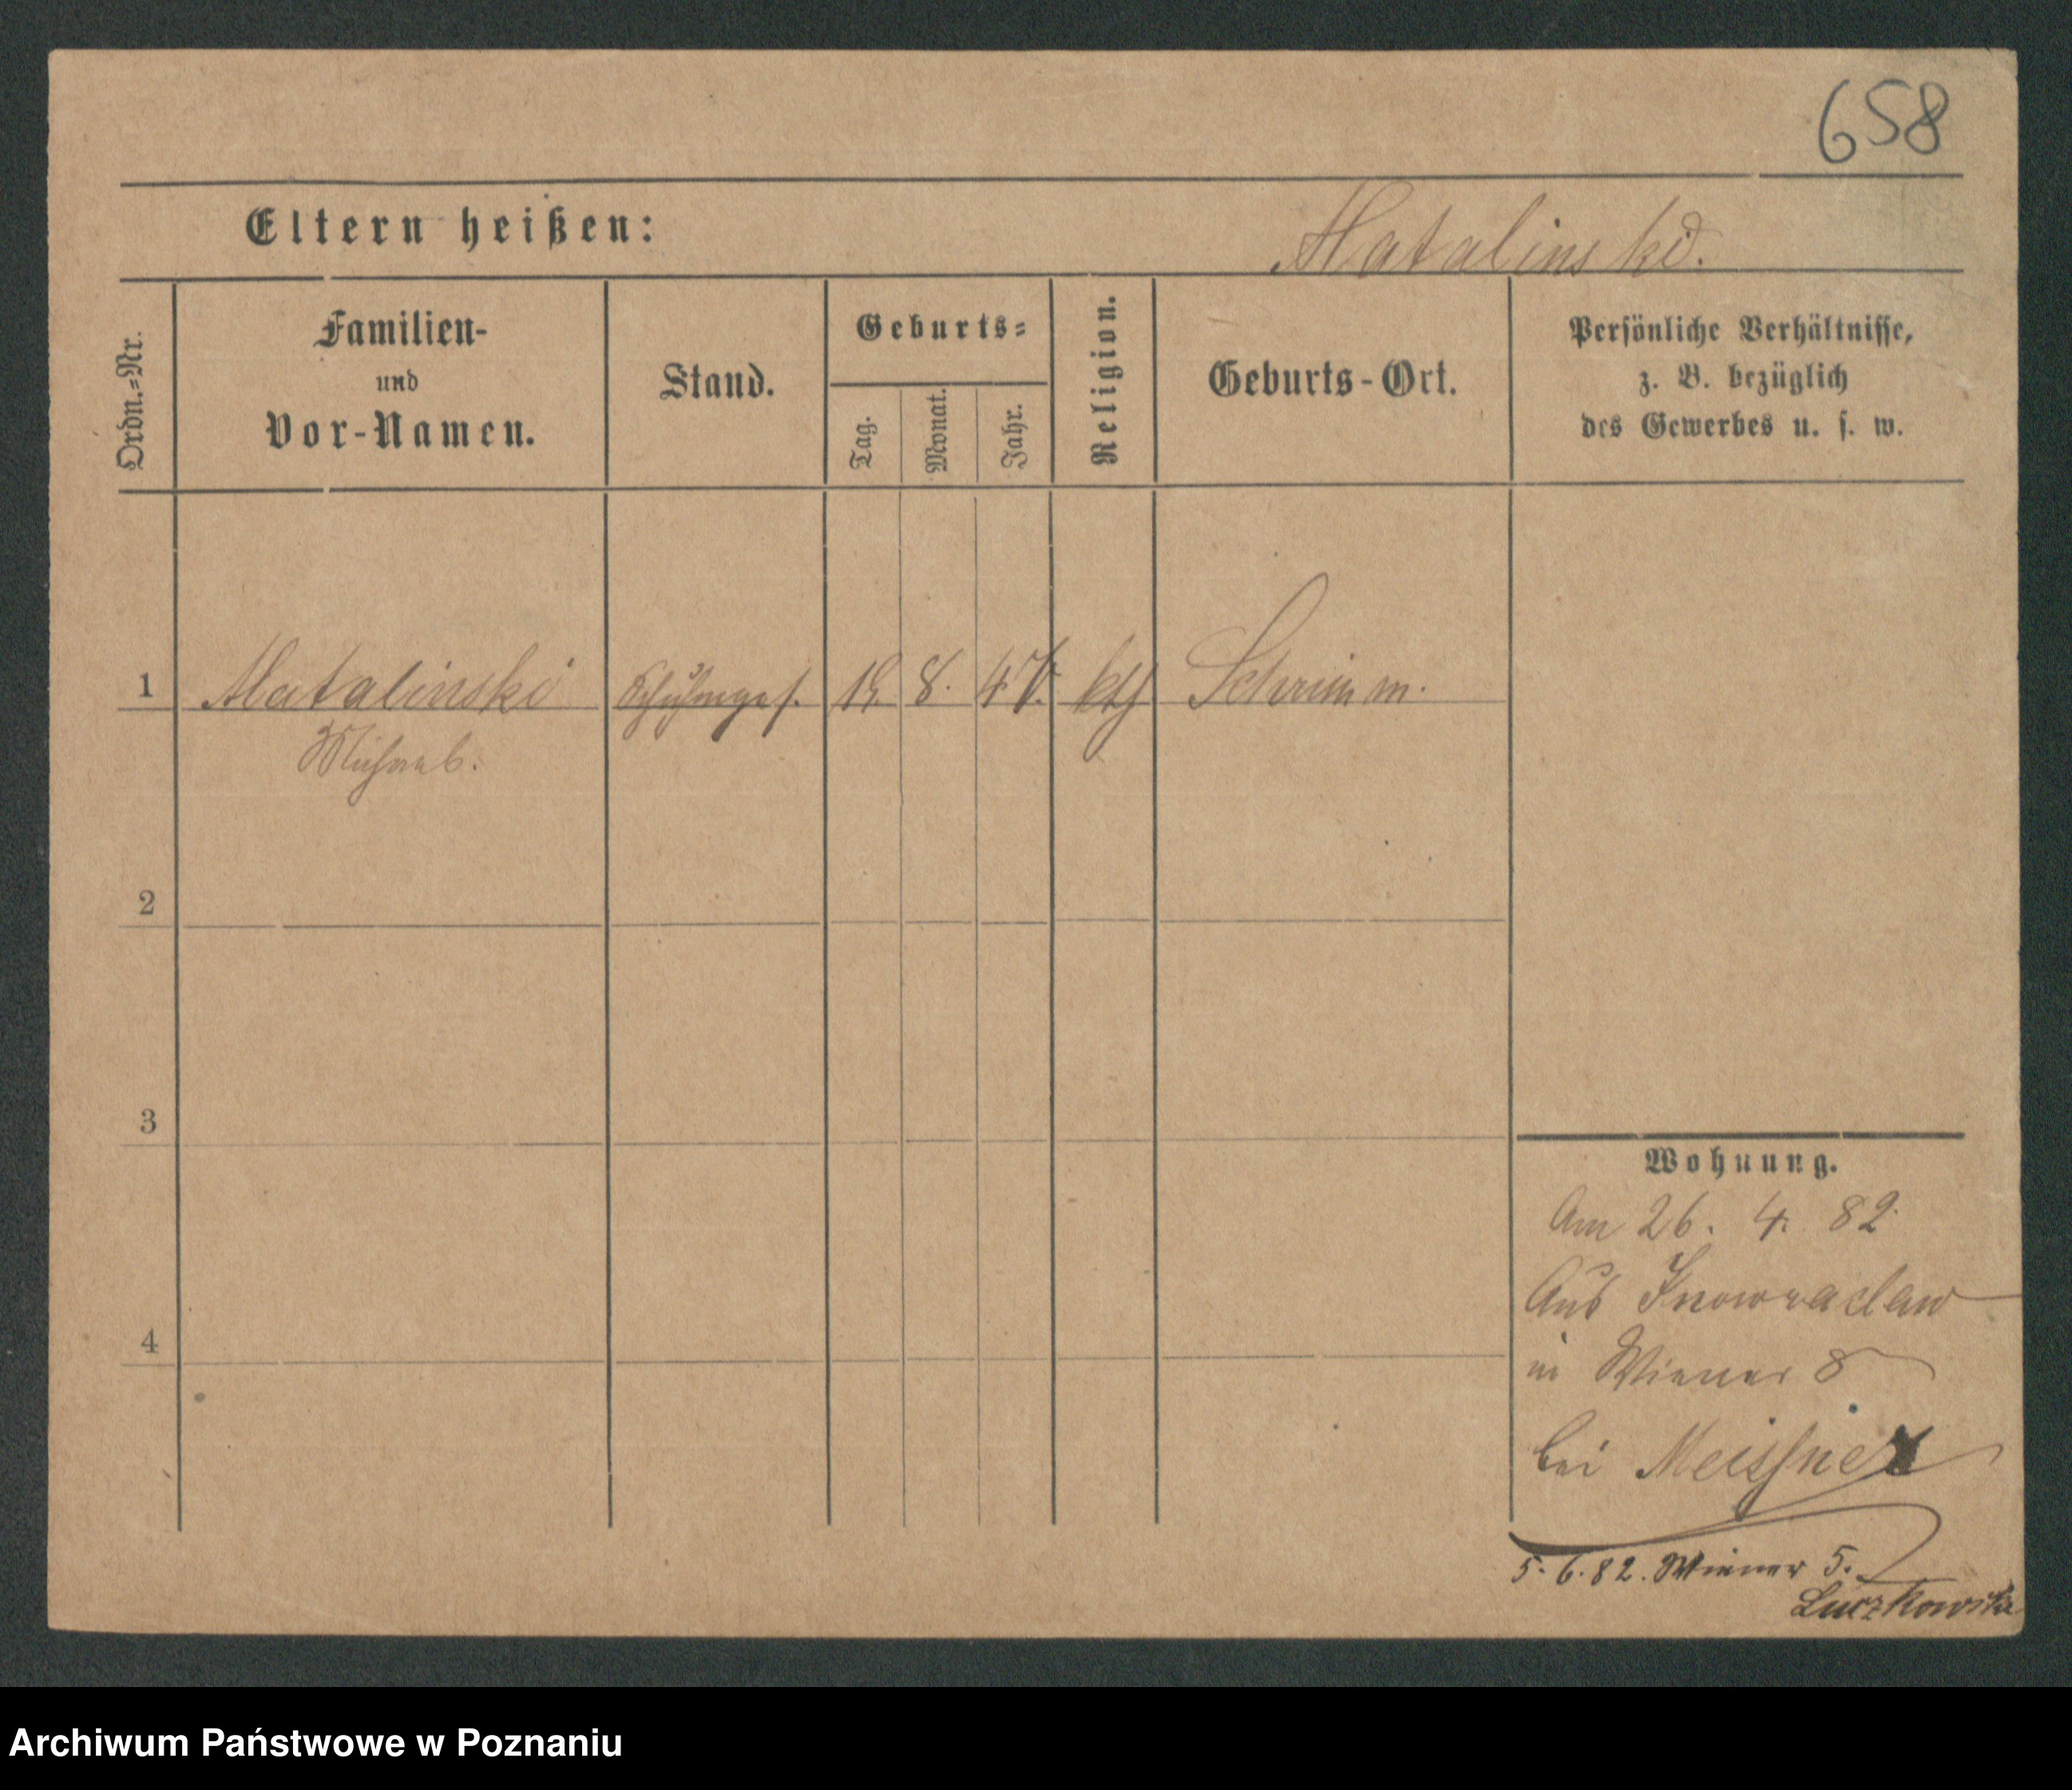 658
Eltern heißen:
Matalinski.
Ordn.=Nr.
Familien-
und
Vor-Namen.
Stand.
Geburts=
Tag.
Monat.
Jahr.
Religion.
Geburts-Ort.
Persönliche Verhältnisse,
z. B. bezüglich
des Gewerbes u. s. w.
1 Matalinski 8. kth Schrimm.
2
3
4
Wohnung.
Am 26. 4. 82
Aus Inowraclaw
in Wiener 8
bei Meissner
5. 6. 82. Wiener 5.
Archiwum Państwowe w Poznaniu